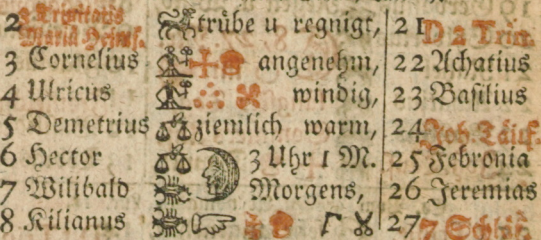 2 trübe u regnigt, 21 D 2 Trin.
Mariä Heims.
3 Cornelius angenehm, 22 Achatius
4 Ulricus windig, 23 Basilius
5 Demetrius ziemlich warm, 24 Joh. Täuf.
6 Hector 3 Uhr 1 M. 25 Febronia
7 Wilibald Morgens, 26 Jeremias
8 Kilianus 27